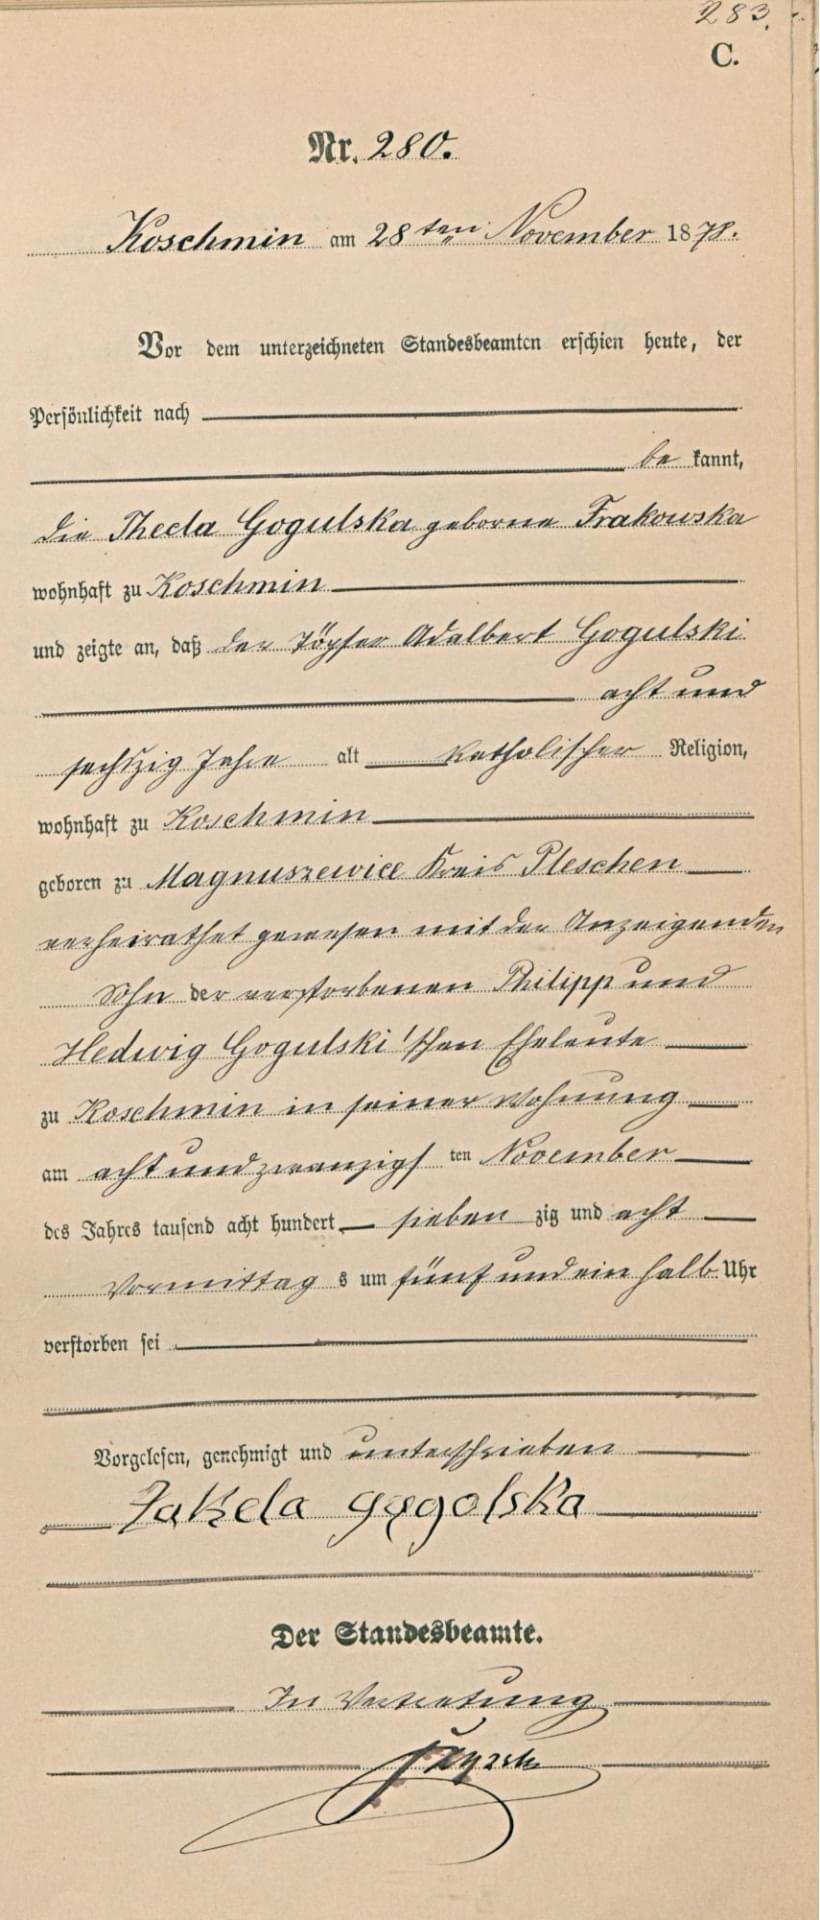 283.
C.
Nr. 280.
Koschmin am 28ten November 1878.
Vor dem unterzeichneten Standesbeamten erschien heute, der
Persönlichkeit nach
be kannt,
die Thecla Gogulska geborne Frakowska
wohnhaft zu Koschmin
und zeigte an, daß der Töpfer Adalbert Gogulski
acht und
sechszig Jahre alt katholischer Religion,
wohnhaft zu Koschmin
geboren zu Magnuszewice Kreis Pleschen
verheirathet gewesen mit der Anzeigenden
Sohn der verstorbenen Philipp und
Hedwig Gogulski'schen Eheleute
zu Koschmin in seiner Wohnung
am acht und zwanzigs ten November
des Jahres tausend acht hundert sieben zig und acht
Vormittag s um fünf und ein halb Uhr
verstorben sei
Vorgelesen, genehmigt und unterschrieben
Takela gogolska
Der Standesbeamte.
In Vertretung